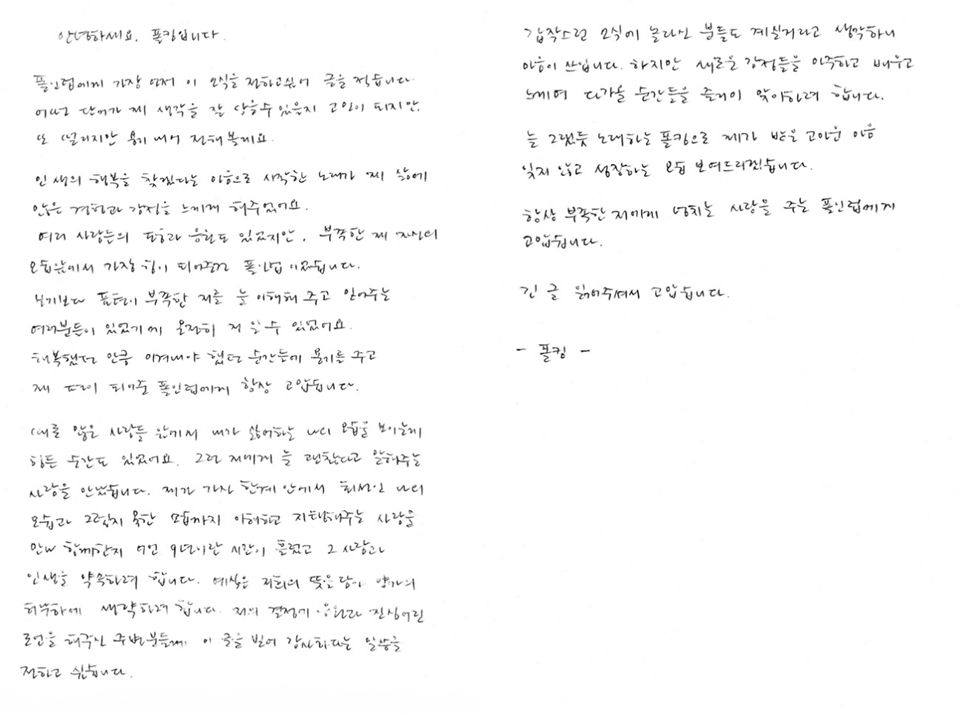 안녕하세요. 폴킴입니다.
폴인럽에게 가장 먼저 이 소식을 전하고싶어 글을 적습니다.
어떠한 단어가 제 생각을 잘 담을수 있을지 고민이 되지만,
또 떨리지만 용기 내어 전해볼게요.
인생의 행복을 찾겠다는 마음으로 시작한 노래가 제 삶에
많은 경험과 감정을 느끼게 해주었어요.
여러 사람들의 도움과 응원도 있었지만, 부족한 제 자신의
모습앞에서 가장 힘이 되어준건 폴인럽 이었습니다.
보기보다 표현이 부족한 저를 늘 이해해 주고 믿어주는
여러분들이 있었기에 온전히 저 일 수 있었어요.
행복했던 만큼 이겨내야 했던 순간들에 용기를 주고
제 편이 되어준 폴인럽에게 항상 고맙습니다.
때론 많은 사람들 앞에서 내가 싫어하는 나의 모습을 보이는게
힘든 순간도 있었어요. 그런 저에게 늘 괜찮다고 말해주는
사람을 만났습니다. 제가 가진 한계 안에서 최선인 나의
모습과 그렇지 못한 모습까지 이해하고 지탱해주는 사람을
만나 함께한지 어언 9년이란 시간이 흘렀고 그 사람과
인생을 약속하려 합니다. 예식은 저희의 뜻을 담아 양가의
허락하에 생략하려 합니다. 저의 결정에 응원과 진심어린
조언을 해주신 주변분들께, 이 글을 빌어 감사하다는 말씀을
전하고 싶습니다.
갑작스런 소식에 놀라신 분들도 계실거라고 생각하니
마음이 쓰입니다. 하지만 새로운 감정들을 마주하고 배우고
느끼며 다가올 순간들을 즐거이 맞이하려 합니다.
늘 그랬듯 노래하는 폴킴으로 제가 받은 고마운 마음
잊지 않고 성장하는 모습 보여드리겠습니다.
항상 부족한 저에게 넘치는 사랑을 주는 폴인럽에게
고맙습니다.
긴 글 읽어주셔서 고맙습니다.
- 폴킴 -